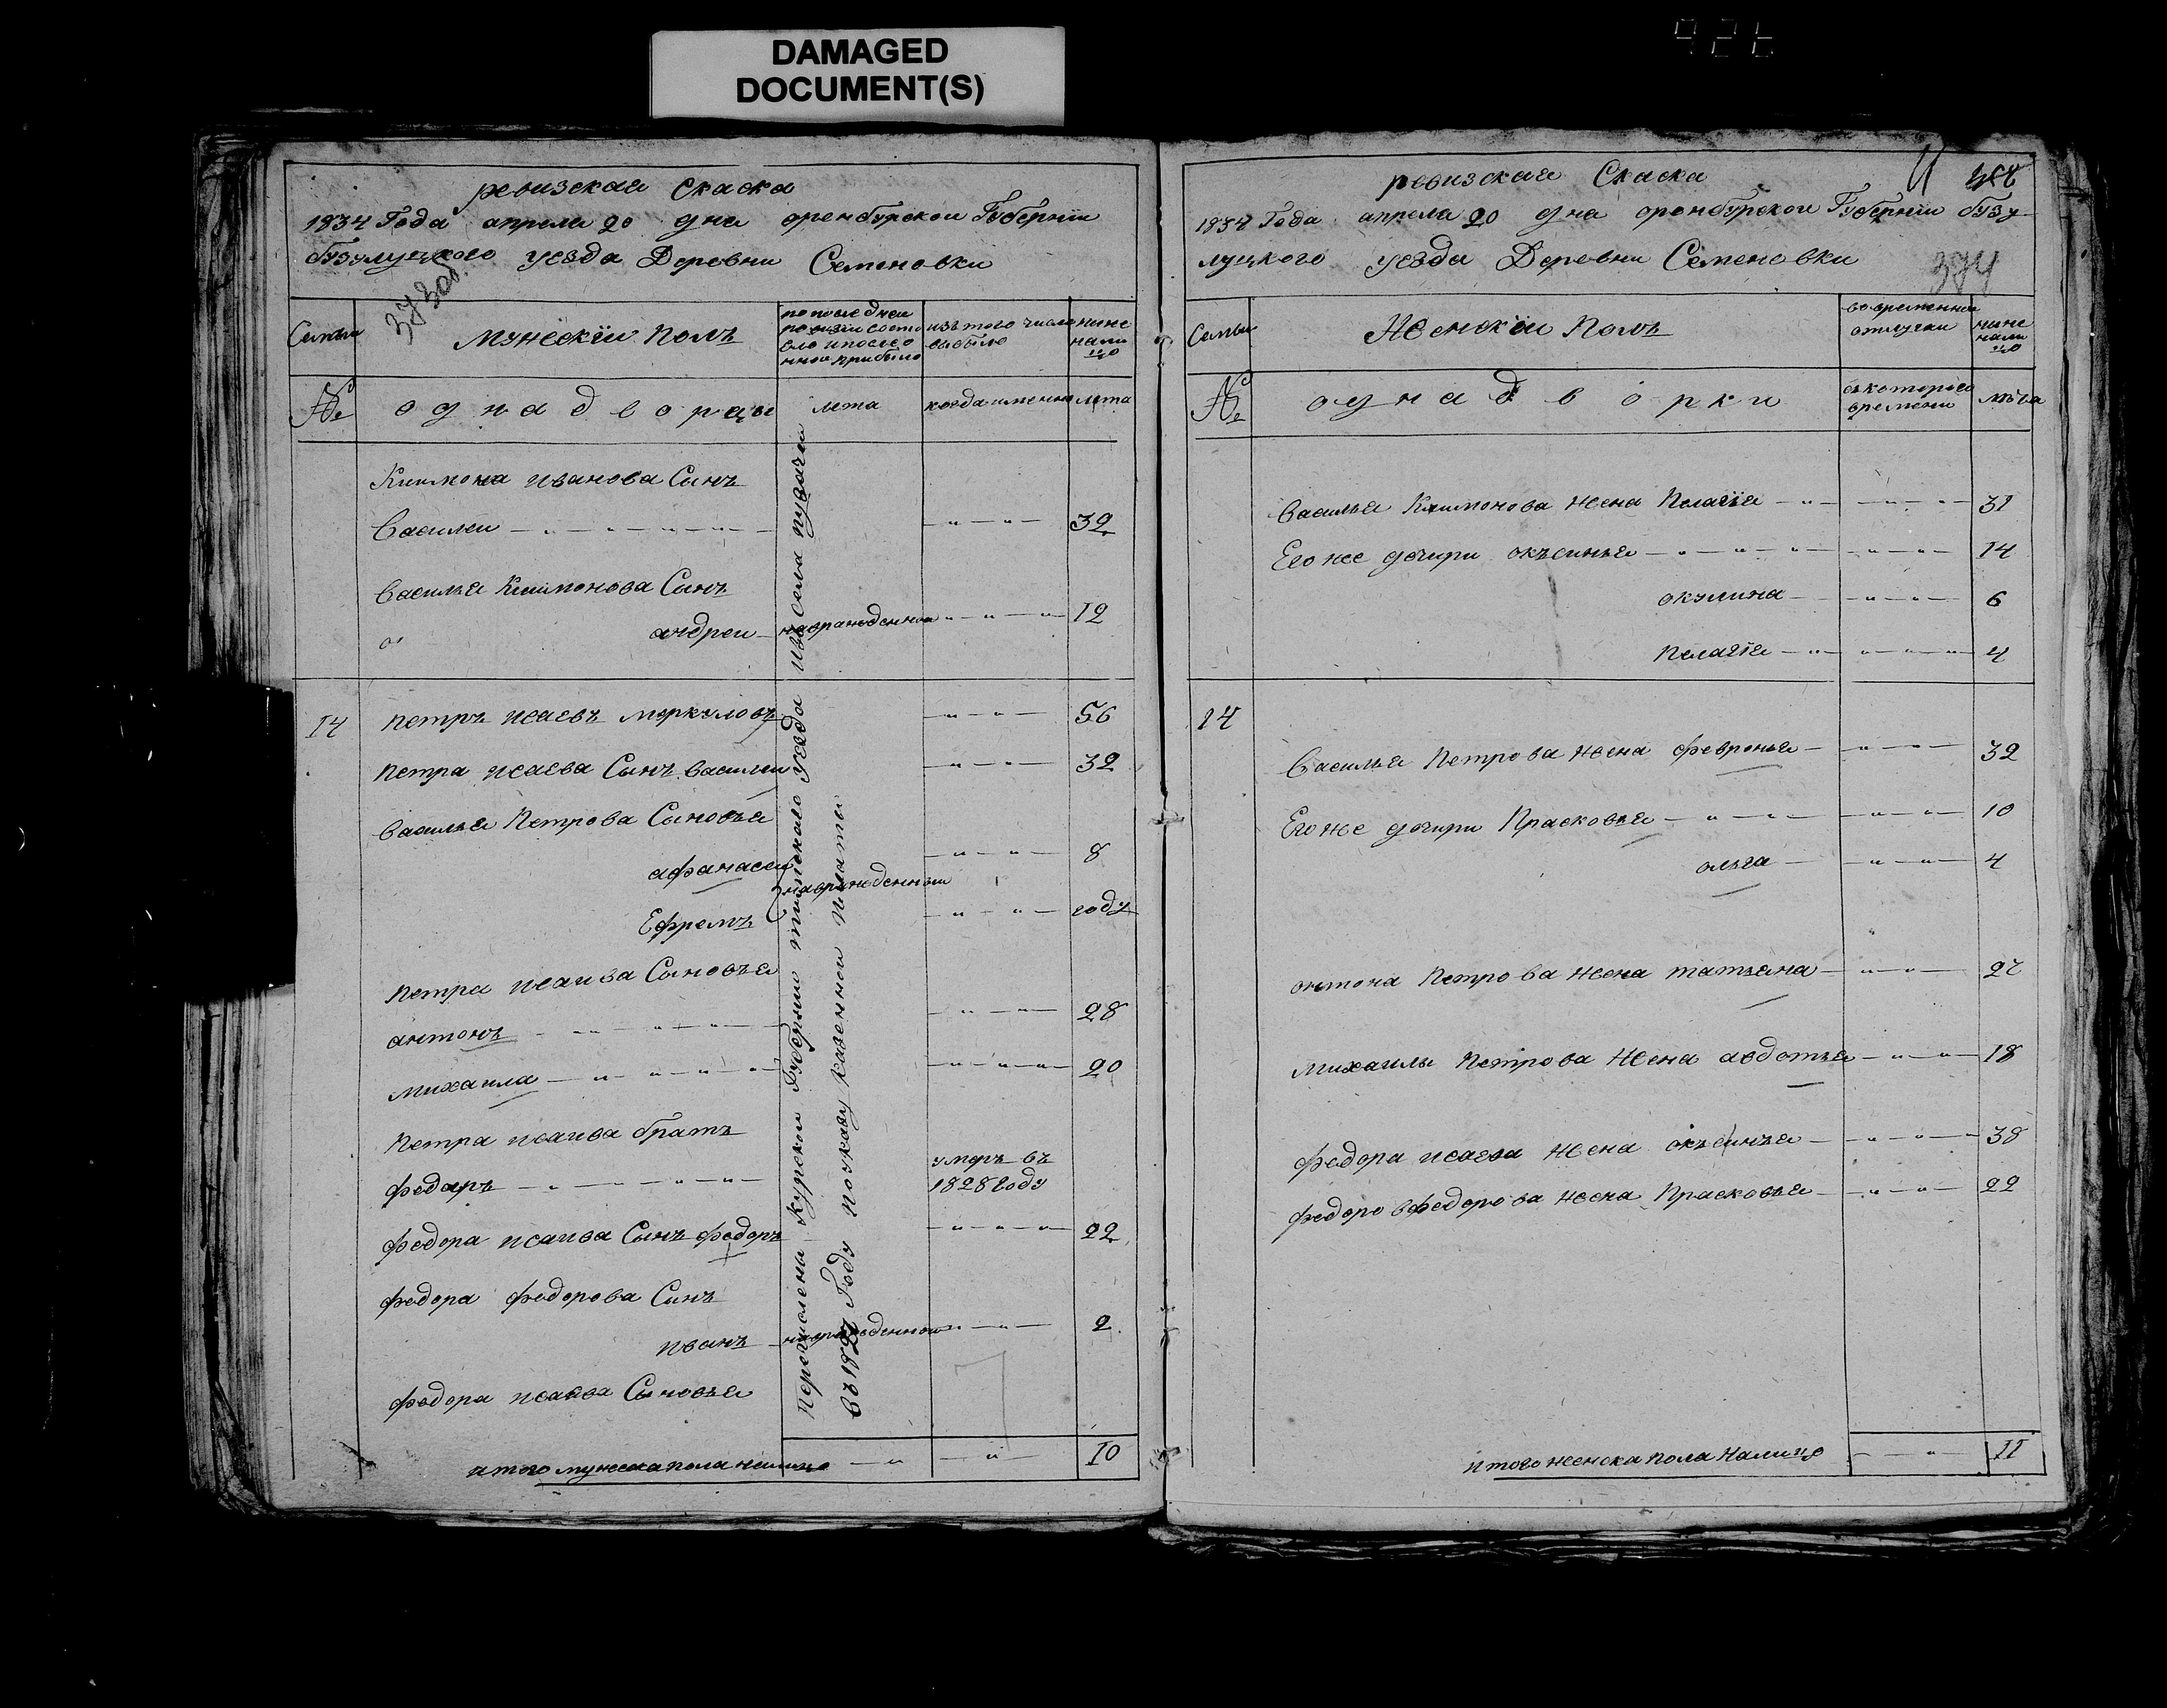 DAMAGED
DOCUMENT(S)
ревизская Скаска
1834 Года апреля 20 дня оренбурской Губернiи
бузулуцкого уезда Деревни Семеновки
Семьи
мужескiи полъ
изъ того числа выбыло
ныне налицо
№
однадворцы
лета
когда именно
лета
Климона иванова Сынъ
Василеи — " — " — " — 32
Василья Климонова Сынъ
андреи — новорожденнои — " — " — 12
14 петръ исаевъ меркуловъ — " — " — 56
петра исаева Сынъ василеи — " — " — 32
Василья Петрова Сыновья
афанасеи — " — " — 8
новорожденныи
Ефремъ — " — " — году
Петра исаива Сыновья
антонъ — " — " — 28
михаила — " — " — 20
Петра исаива братъ
федаръ — " — " — умеръ въ 1828 году
федора исаива Сынъ федоръ — " — " — 22
федора федорова Сынъ
иванъ — новорожденнои — " — " — 2
федора исаива Сыновья
итого мужеска пола налицо — " — " — 10
Перечислены курскои Губернии тимскаго уезда изъ села пузачи
Въ 1827 Году по указу казеннои палаты
ревизская Скаска
1834 Года апреля 20 дня оренбурской Губернiи бузу-
луцкого уезда Деревни Семеновки
374
Семьи
Женскiи полъ
во временнои отлучки
ныне налицо
№
однадворки
съ которого времени
лета
Василья Климонова жена Пелагiя — " — " — 31
Его же дочири окъсинья — " — " — 14
окулина — " — " — 6
Пелагiя — " — " — 4
14
Василья Петрова жена февронья — " — " — 32
Его же дочири Прасковья — " — " — 10
ольга — " — " — 4
антона Петрова жена татьяна — " — " — 27
михаилы Петрова жена авдотья — " — " — 18
федора исаева жена окъсинья — " — " — 38
федорова жена Прасковья — " — " — 22
итого женска пола налицо — " — 11